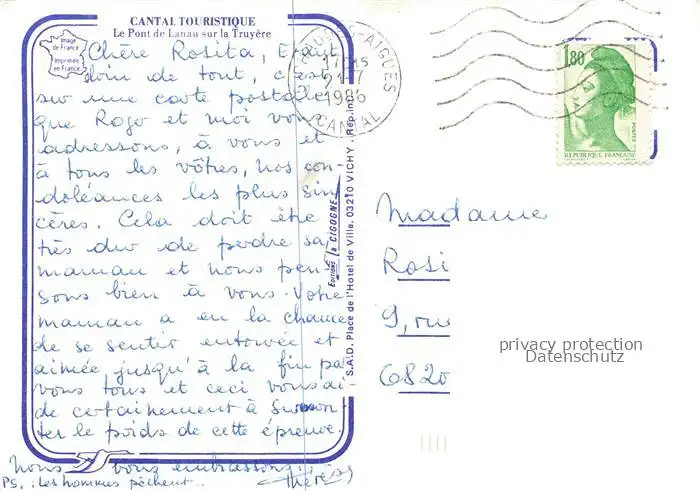 CANTAL TOURISTIQUE
Le Pont de Lanau sur la Truyère
Image
de France
Imprimée
en France
Chère Rosita, Étant
loin de tout, c'est
sur une carte postale
que Roger et moi vous
adressons, à vous et
à tous les vôtres, nos con-
doléances les plus sin
cères. Cela doit être
très dur de perdre sa
maman et nous pen
sons bien à vous. Votre
maman a eu la chance
de se sentir entourée et
aimée jusqu'à la fin pa
vous tous et ceci vous ai
de certainement à surmon-
ter le poids de cette épreuve.
Nous vous embrassons.
Thérèse
PS. : Les hommes pêchent...
S.A.I.D. Place de l'Hotel de Ville. 03210 VICHY. Rép. int.
Editions la CIGOGNE
CHAUDES-AIGUES
17 H 15
21-7
1986
CANTAL
1,80
POSTES
REPUBLIQUE FRANCAISE
Madame
Rosi
9, rue
6820
privacy protection
Datenschutz